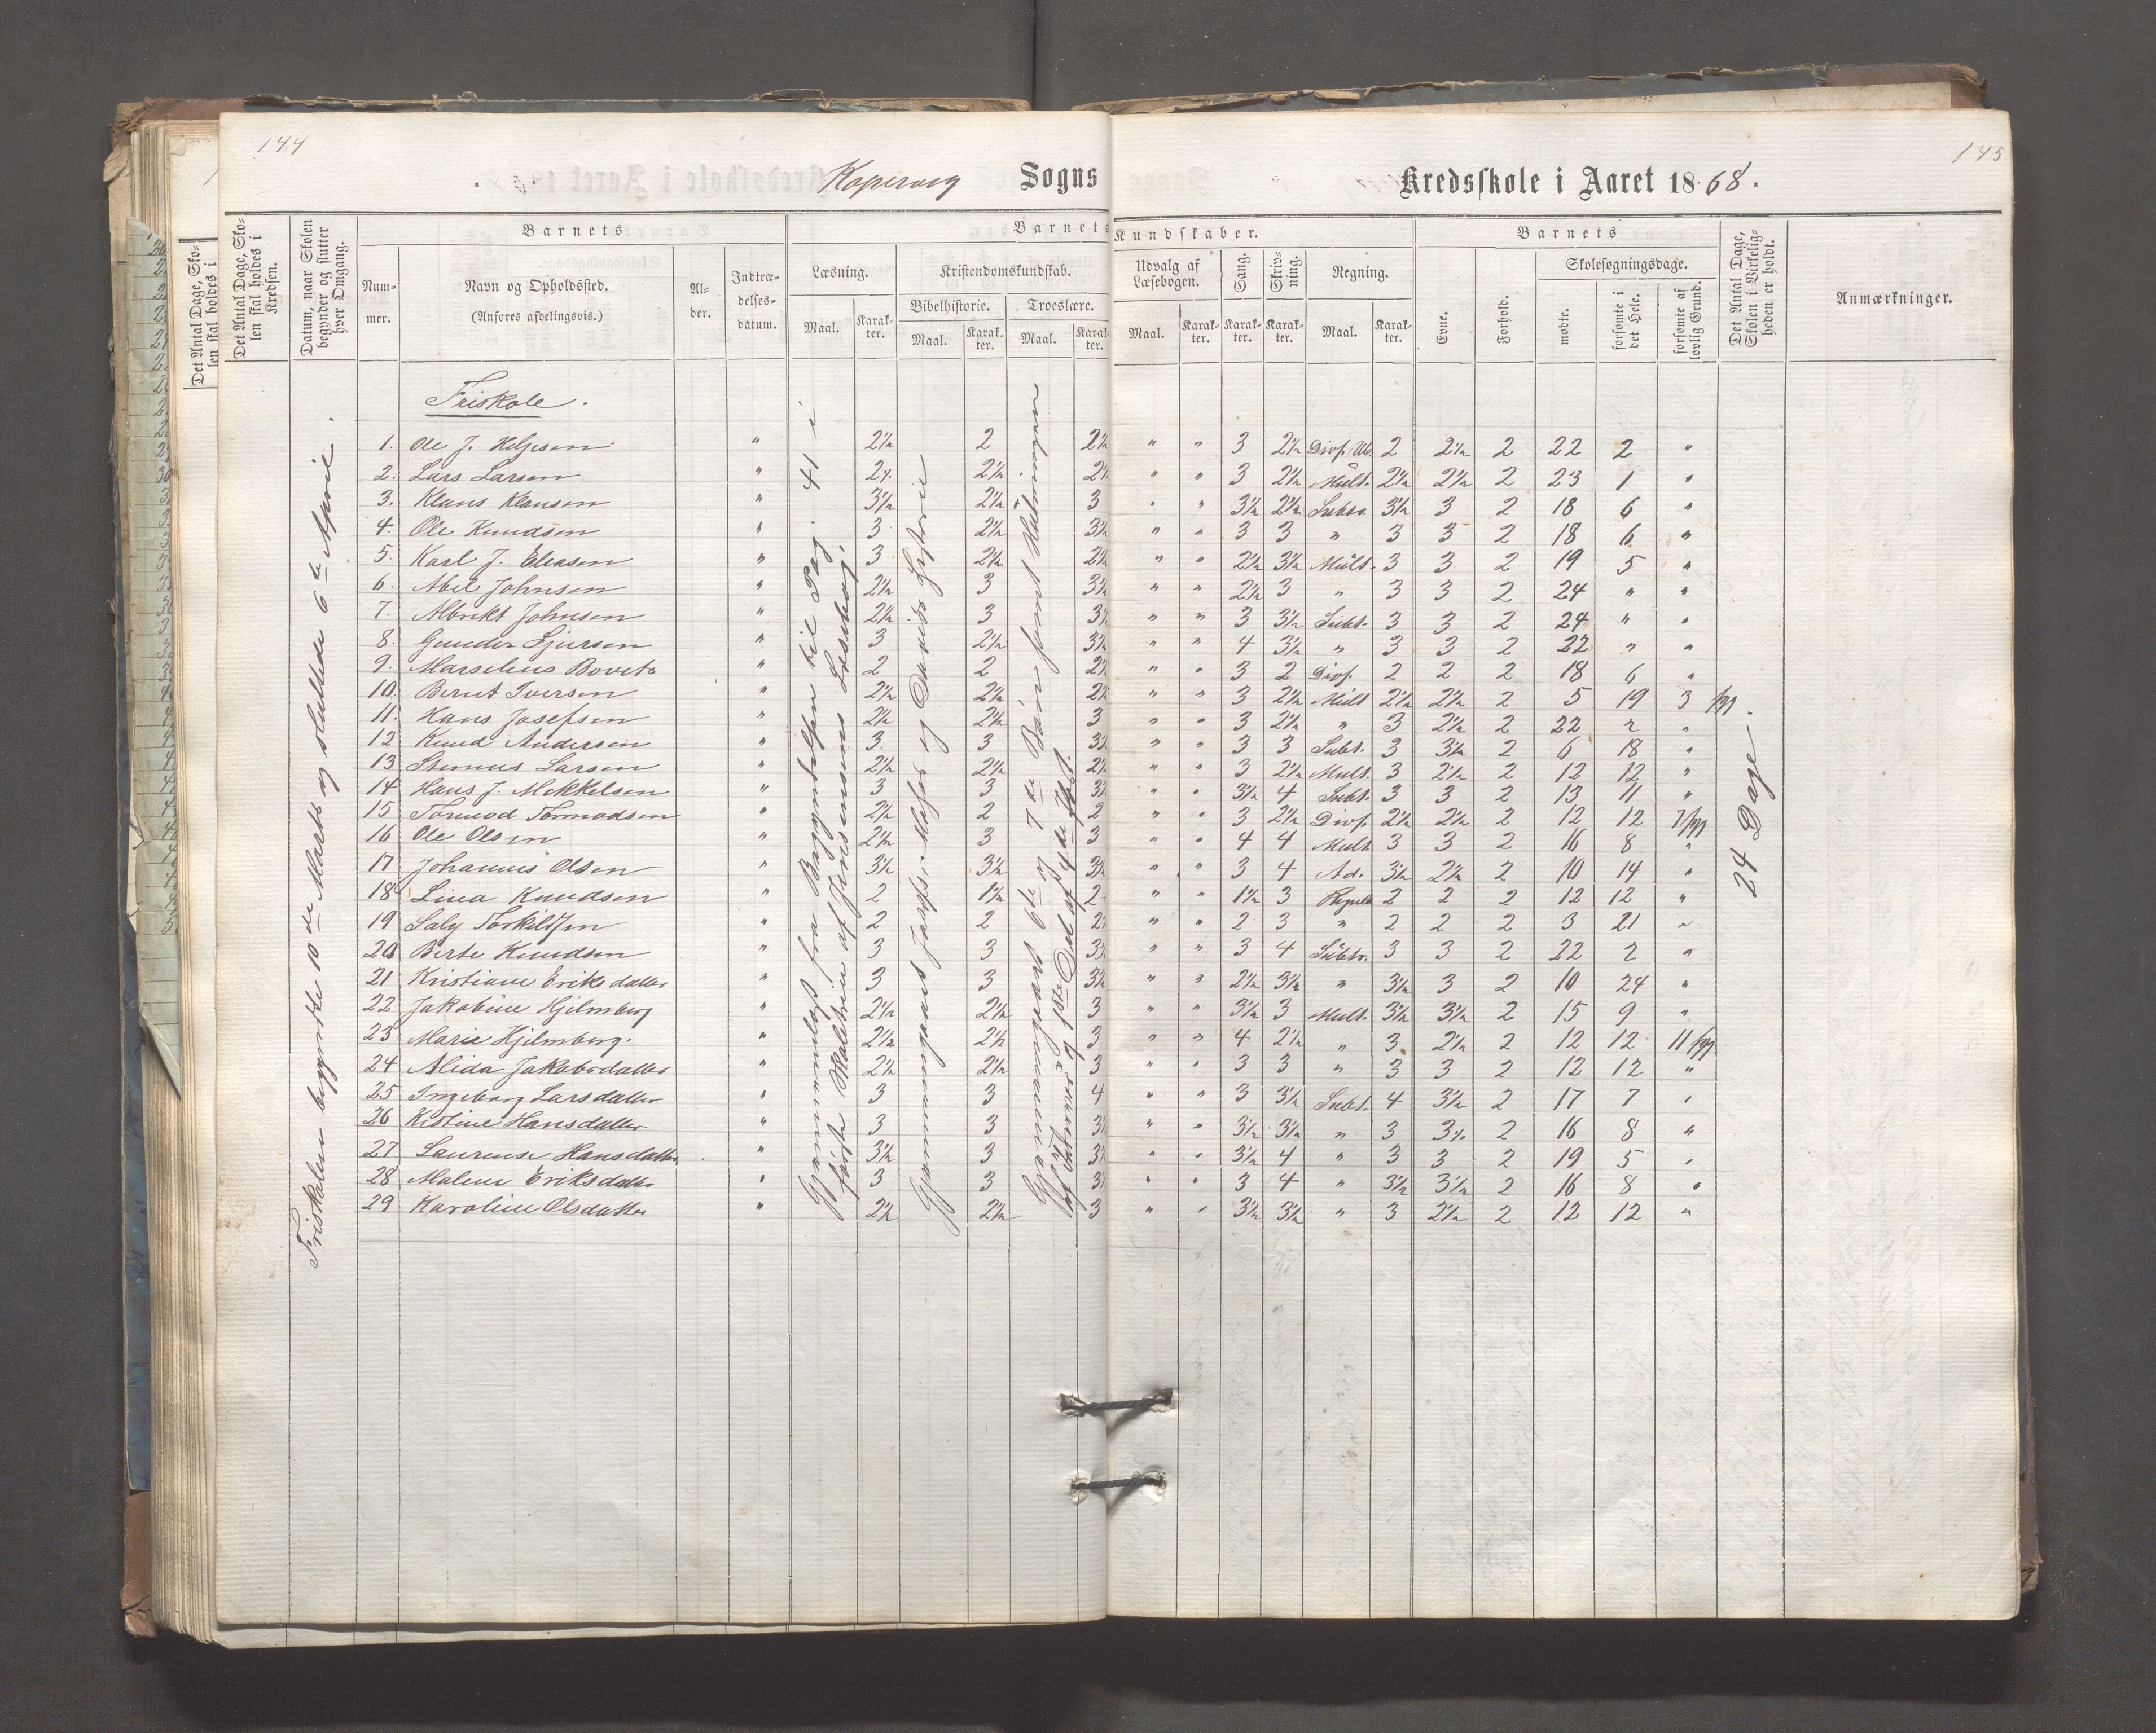 144
145
Kopervig Sogns Kredsskole i Aaret 1868.
Det Antal Dage, Skolen skal holdes i Kredsen.
Datum, naar Skolen begynder og slutter hver Omgang.
Barnets
Barnets Kundskaber.
Barnets
Det Antal Dage, Skolen i Virkeligheden er holdt.
Anmærkninger.
Nummer.
Navn og Opholdssted.
(Anføres afdelingsvis.)
Alder.
Indtrædelsesdatum.
Læsning.
Kristendomskundskab.
Bibelhistorie.
Troeslære.
Udvalg af Læsebogen.
Sang.
Skrivning.
Regning.
Evne.
Forhold.
Skolesøgningsdage.
mødte.
forsømte i det Hele.
forsømte af lovlig Grund.
Maal. Karakter. Maal. Karakter. Maal. Karakter. Maal. Karakter. Karakter. Karakter. Maal. Karakter.
Friskolen begyndte 10de Marts og sluttede 6te April.
Friskole.
1. Ole J. Helgesen " 2½ 2 2½ " " 3 2½ 2 2½ 2 22 2 "
2. Lars Larsen " 2½ 2½ 2½ " " 3 2½ Mult. 2½ 2½ 2 23 1 "
3. Klaus Klausen " 3½ 2½ 3 " " 3½ 2½ Subtr. 3½ 3 2 18 6 "
4. Ole Knudsen " 3 2½ 3½ " " 3 3 " 3 3 2 18 6 "
5. Karl J. Eliasen " 3 2½ 2½ " " 2½ 3½ Mult. 3 3 2 19 5 "
6. Abel Johnsen " 2½ 3 3½ " " 2½ 3 " 3 3 2 24 " "
7. Albrekt Johnsen " 2½ 3 3½ " " 3 3½ Subt. 3 3 2 24 " "
8. Gunder Sjursen " 3 2½ 3½ " " 4 3½ " 3 3 2 22 " "
9. Marselius Bovets " 2 2 2½ " " 3 2 Divis. 2 2 2 18 6 "
10. Bernt Iversen " 2½ 2½ 2½ " " 3 2½ Mult 2½ 2½ 2 5 19 3
11. Hans Josefsen " 2½ 2½ 3 " " 3 2½ " 3 2½ 2 22 2 "
12 Knud Andersen " 3 3 3½ " " 3 3 Subt. 3 3½ 2 6 18 "
13 Larsen " 2½ 2½ 2½ " " 3 2½ Mult. 3 2½ 2 12 12 "
14 Hans J. Mekkelsen " 3 3 3½ " " 3½ 4 Subt. 3 3 2 13 11 "
15 Tormod Tormodsen " 2½ 2 2 " " 3 2½ Divis. 2½ 2½ 2 12 12 7
16 Ole Olsen " 2½ 3 3 " " 4 4 Mult 3 3 2 16 8 "
17 Johannes Olsen " 3½ 3½ 3½ " " 3 4 Ad. 3½ 2½ 2 10 14 "
18 Lina Knudsen " 2 1½ 2 " " 1½ 3 2 2 2 12 12 "
19 Saly Torkildsen " 2 2 2½ " " 2 3 " 2 2 2 3 21 "
20 Berte Knudsen " 3 3 3½ " " 3 4 Subtr. 3 3 2 22 2 "
21 Kristiane Eriksdatter " 3 3 3½ " " 2½ 3½ " 3½ 3 2 10 24 "
22 Jakobine Hjelmberg " 2½ 2½ 3 " " 3½ 3 Mult. 3½ 3½ 2 15 9 "
23 Marie Hjelmberg. " 2½ 2½ 3 " " 4 2½ " 3 2½ 2 12 12 11
24 Alida Jakobsdatter " 2½ 2½ 3 " " 3 3 " 3 3 2 12 12 "
25 Ingeborg Larsdatter " 3 3 4 " " 3 3½ Subt. 4 3½ 2 17 7 "
26 Kistine Hansdatter " 3 3 3½ " " 3½ 3½ " 3 3½ 2 16 8 "
27 Laurense Hansdatter " 3½ 3 3½ " " 3½ 4 " 3 3 2 19 5 "
28 Malene Eriksdatter " 3 3 3½ " " 3 4 " 3½ 3½ 2 16 8 "
29 Karoline Olsdatter " 2½ 2½ 3 " " 3½ 3½ " 3 2½ 2 12 12 "
Gjennemlæst fra Begyndelsen til Pag. 41 i
første Skoletrin af Jensensens Læsebog.
Gjennemgaaet Josefs, Moses og Davids Historie
Gjennemgaaet 6te og 7de Bøn samt Slutningen
24 Dage.